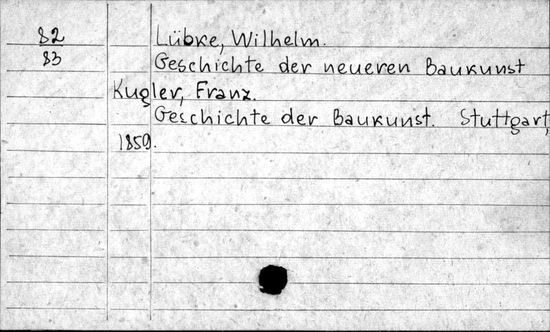 82 Lübke, Wilhelm.
83 Geschichte der neueren Baukunst
Kugler, Franz.
Geschichte der Baukunst. Stuttgart,
1859.